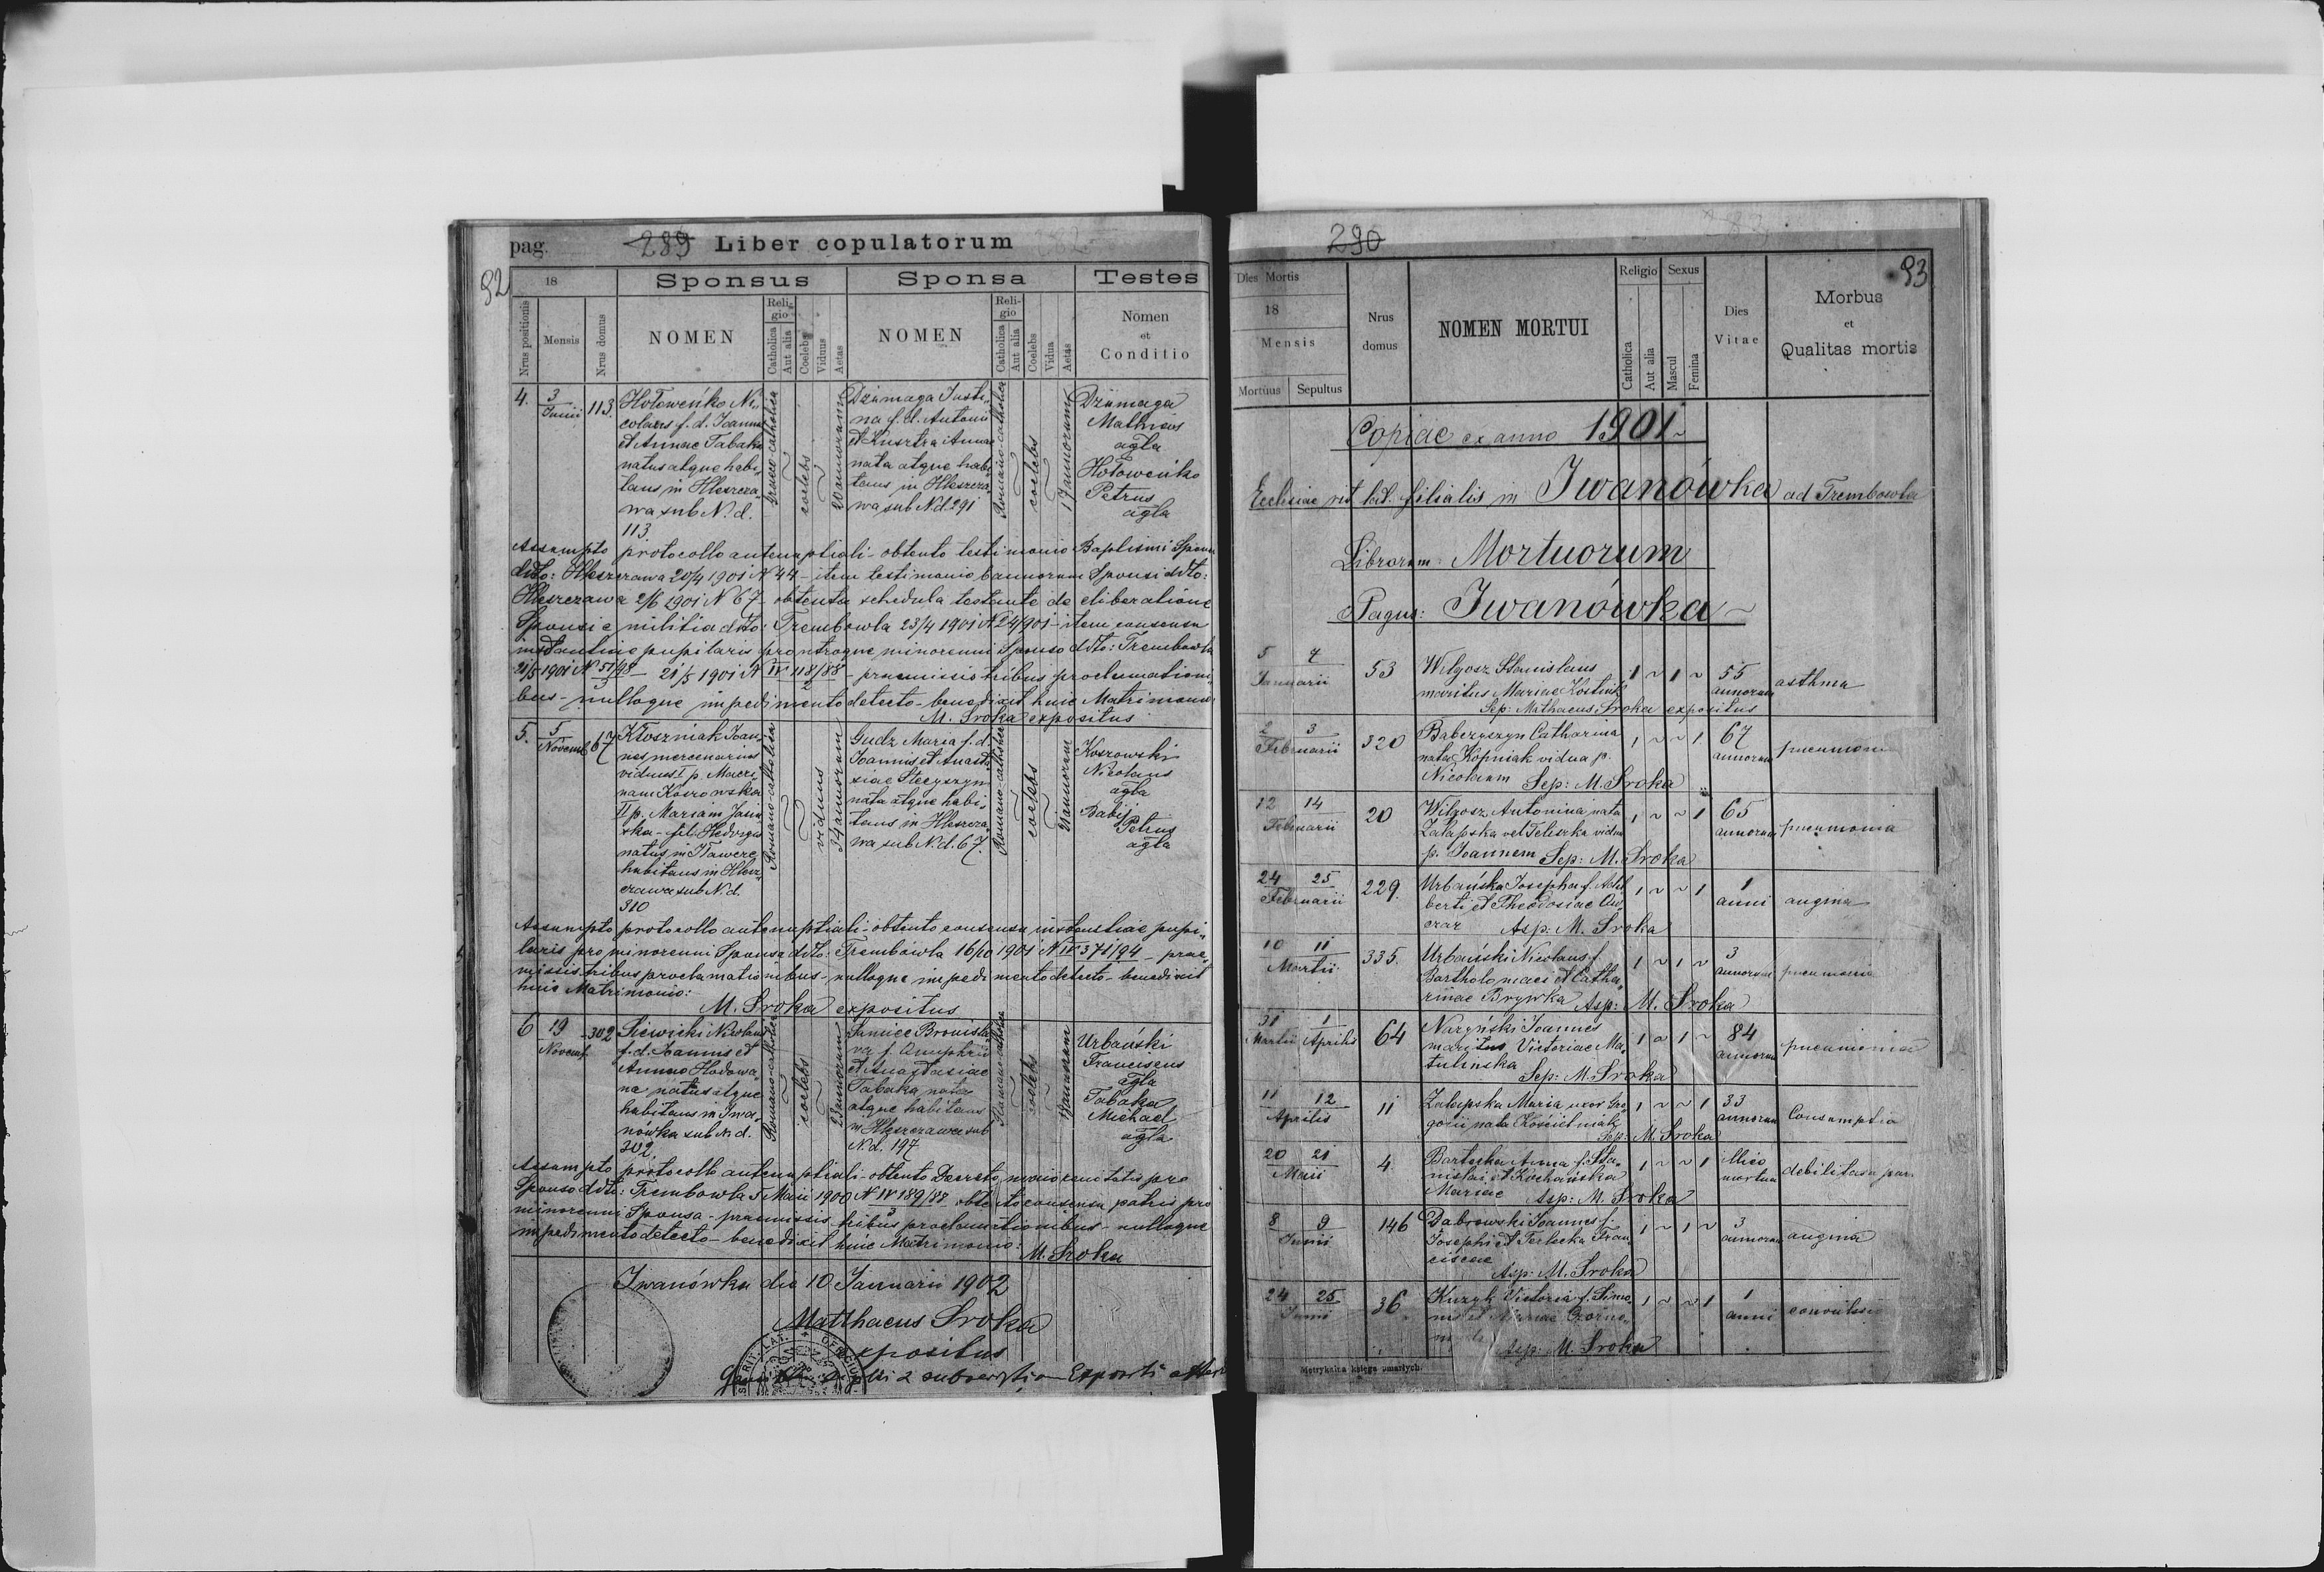 pag. 289 Liber copulatorum
92
18
Sponsus
Sponsa
Testes
Nrus positionis
Mensis
Nrus domus
NOMEN
Religio
Catholica
Aut alia
Coelebs
Viduus
Aetas
NOMEN
Religio
Catholica
Aut alia
Coelebs
Vidua
Aetas
Nomen
et
Conditio
4. 3 Junii 113.
Hołoweńko Ni„
colaus f. d. Joannis
et Annae Tabaka
natus atque habi„
tans in Hleszcza„
wa sub N. d.
113.
Graeco-catholica
coelebs
20 annorum
Dżumaga Justi„
na f. d. Antonii
et Annae
nata atque habi„
tans in Hleszcza„
wa sub N.d. 291
Romano-catholica
coelebs
17 annorum
Dżumaga
Mathaeus
agla
Hołoweńko
Petrus
agla
Assumpto protocollo antenuptiali - obtento testimonio Baptismi Sponsi
ddto: Hleszczawa 20/4 1901 N 44 - item testimonio bannorum Sponsi ddto:
Hleszczawa 2/6 1901 N 67 - obtenta schedula testante de eliberatione
Sponsi e militia ddto: Trembowla 23/4 1901 N 24/901 - item consensu
instantiae pupilaris pro utroque minorenni Sponso ddto: Trembowla
21/5 1901 N - 21/5 1901 N IV 118/88 - praemissis tribus proclamationi„
bus - nulloque impedimento detecto - benedixit huic Matrimonio
M. Sroka expositus
5. 5 Novemb 67
Kłoszniak Joan„
nes mercenarius
viduus I p. Macri„
nam Koszowska
II p. Mariam Jasiń„
ska - fil. Hedvigis
natus in Iławcze
habitans in Hlesz„
czawa sub N. d.
310
Romano-catholica
viduus
34 annorum
Gudz Maria f. d.
Joannis et Anasta„
siae Stecyszyn
nata atque habi„
tans in Hleszcza„
wa sub N. d. 67.
Romano-catholica
coelebs
21 annorum
Koszowski
Nicolaus
agla
Babij
Petrus
agla
Assumpto protocollo antenuptiali - obtento consensu instantiae pupi„
laris pro minorenni Sponsa ddto: Trembowla 16/10 1901 N IV 371/94 - prae„
missis tribus proclamationibus - nulloque impedimento detecto - benedixit
huic Matrimonio:
M. Sroka expositus
6 19 Novemb. 302
Siewicki Nicolaus
f. d. Joannis et
Annae Hadowa„
na natus atque
habitans in Iwa„
nówka sub N d.
302.
Romano-catholica
coelebs
23 annorum
Bronisla„
va f. Onuphrii
et Anastasiae
Tabaka nata
atque habitans
in Hleszczawa sub
N. d. 197
Romano-catholica
coelebs
annorum
Urbański
Franciscus
agla
Tabaka
Michael
agla
Assumpto protocollo antenuptiali - obtento Decreto majorennitatis pro
Sponso ddto: Trembowla 5 Maii 1900 N IV 189/88 - obtento consensu patris pro
minorenni Sponsa - praemissis tribus proclamationibus - nulloque
impedimento detecto - benedixit huic Matrimonio:
M. Sroka
Iwanówka die 10 Januarii 1902
Matthaeus Sroka
expositus
290
93
Dies Mortis
18
Mensis
Mortuus Sepultus
Nrus
domus
NOMEN MORTUI
Religio
Catholica
Aut alia
Sexus
Mascul
Femina
Dies
Vitae
Morbus
et
Qualitas mortis
Copiae ex anno 1901
Ecclesiae rit. lat. filialis in Iwanówka ad Trembowla
Librorum Mortuorum
Pagus: Iwanówka
5 7 Januarii 53
Wilgosz Stanislaus
maritus Mariae Kostiuk
Sep: Mathaeus Sroka expositus
1 ~ 1 ~
55 annorum
asthma
2 3 Februarii 320
Baberyszyn Catharina
nata Kopniak vidua p.
Nicolaum Sep: M. Sroka
1 ~ ~ 1
67 annorum
pneumonia
12 14 Februarii 20
Wilgosz Antonina nata
Załapska vel Teliszka vidua
p. Joannem Sep: M. Sroka
1 ~ ~ 1
65 annorum
pneumonia
24 25 Februarii 229.
Urbańska Josepha f. Adal
berti et Theodosiae Ow„
czar Asp: M. Sroka
1 ~ ~ 1
1 anni
angina
10 11 Martii 335.
Urbański Nicolaus f.
Bartholomaei et Catha„
rinae Brywka Asp: M. Sroka
1 ~ 1 ~
3 annorum
pneumonia
31 Martii 1 Aprilis 64
Naryński Joannes
maritus Victoriae Ma„
tulinska
Sep: M. Sroka
1 ~ 1 ~
84 annorum
pneumonia
11 12 Aprilis 11
Załapska Maria uxor Gre„
gorii nata Kościelniak
Sep: M. Sroka
1 ~ ~ 1
33 annorum
Consumptio
20 21 Maii 4
Bartecka Anna f. Sta„
nislai et Kochańska
Mariae Asp: M. Sroka
1 ~ ~ 1
illico mortua
debilitas
8 9 Junii 146
Dabrowski Joannes f.
Josephi et Terlecka Fran„
ciscae
Asp: M. Sroka
1 ~ 1 ~
3 annorum
angina
24 25 Junii 36
Kuzyk Victoria f. Simo„
nis et Mariae
Asp: M. Sroka
1 ~ ~ 1
1 anni
convulsio
Metrykalna księga umarłych.